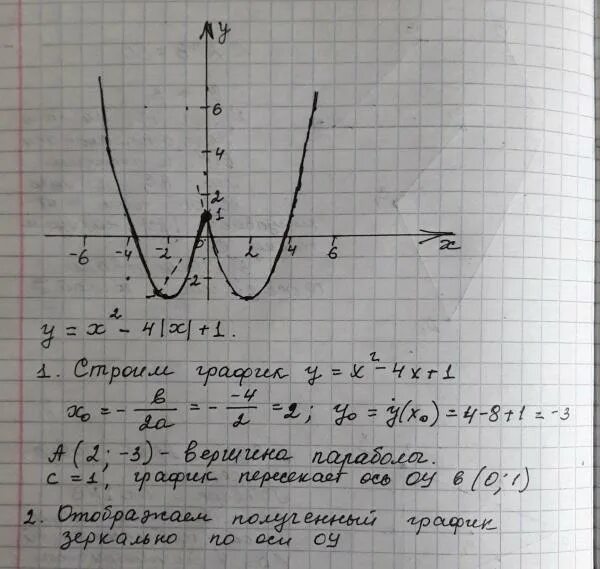 y
6
4
2
1
-6 -4 -2 0 2 4 6 x
-2
y = x² - 4|x| + 1.
1. Строим график y = x² - 4x + 1
x₀ = - в/2a = - -4/2 = 2; y₀ = y(x₀) = 4 - 8 + 1 = -3
A (2; -3) - вершина параболы.
c = 1, график пересекает ось ОУ в (0; 1)
2. Отображаем полученный график
зеркально по оси ОУ